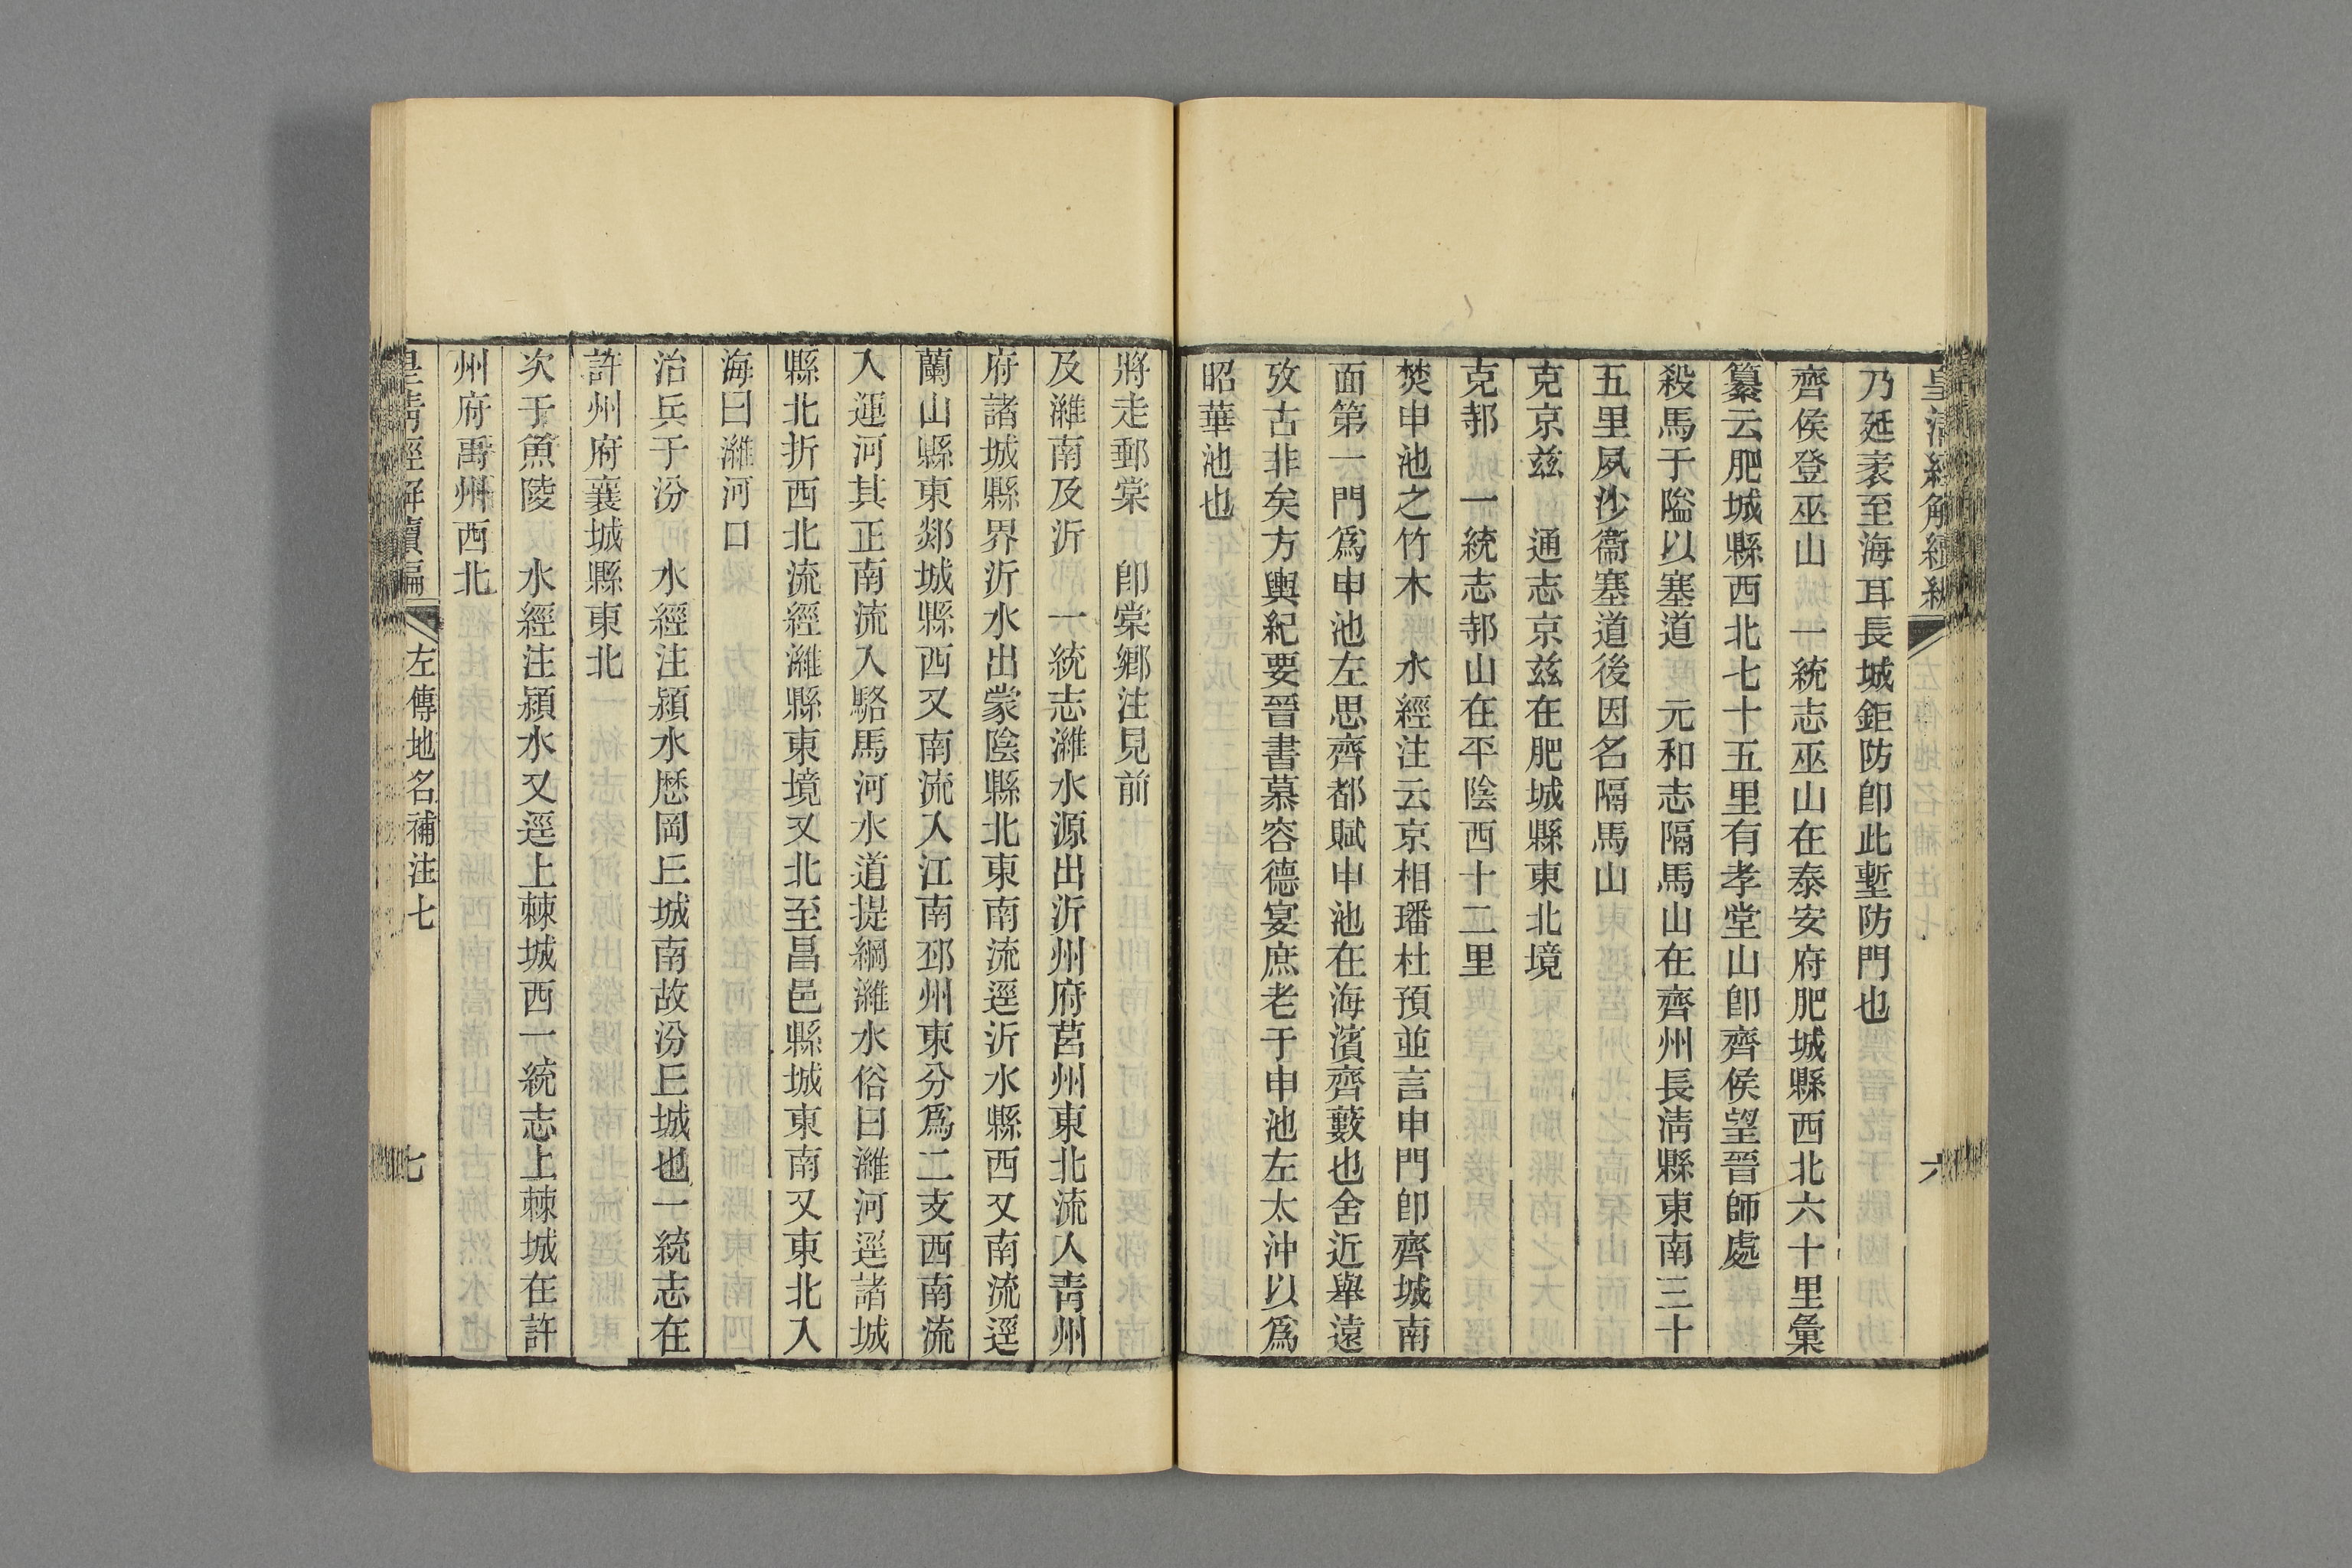 皇清經解續編 六
乃延袤至海耳長城鉅防卽此塹防門也
齊侯登巫山 一統志巫山在泰安府肥城縣西北六十里彙
纂云肥城縣西北七十五里有孝堂山卽齊侯望晉師處
殺馬于隘以塞道 元和志隔馬山在齊州長淸縣東南三十
五里夙沙衞塞道後因名隔馬山
克京茲 通志京茲在肥城縣東北境
克邿 一統志邿山在平陰西十二里
焚申池之竹木 水經注云京相璠杜預並言申門卽齊城南
面第一門爲申池左思齊都賦申池在海濱齊藪也舍近舉遠
攷古非矣方輿紀要晉書慕容德宴庶老于申池左太沖以爲
昭華池也
將走郵棠 卽棠鄉注見前
及濰南及沂 一統志濰水源出沂州府莒州東北流入靑州
府諸城縣界沂水出蒙陰縣北東南流逕沂水縣西又南流逕
蘭山縣東郯城縣西又南流入江南邳州東分爲二支西南流
入運河其正南流入駱馬河水道提綱濰水俗曰濰河逕諸城
縣北折西北流經濰縣東境又北至昌邑縣城東南又東北入
海曰濰河口
治兵于汾 水經注潁水歷岡丘城南故汾丘城也一統志在
許州府襄城縣東北
次于魚陵 水經注潁水又逕上棘城西一統志上棘城在許
州府禹州西北
皇清經解續編 左傳地名補注七 七